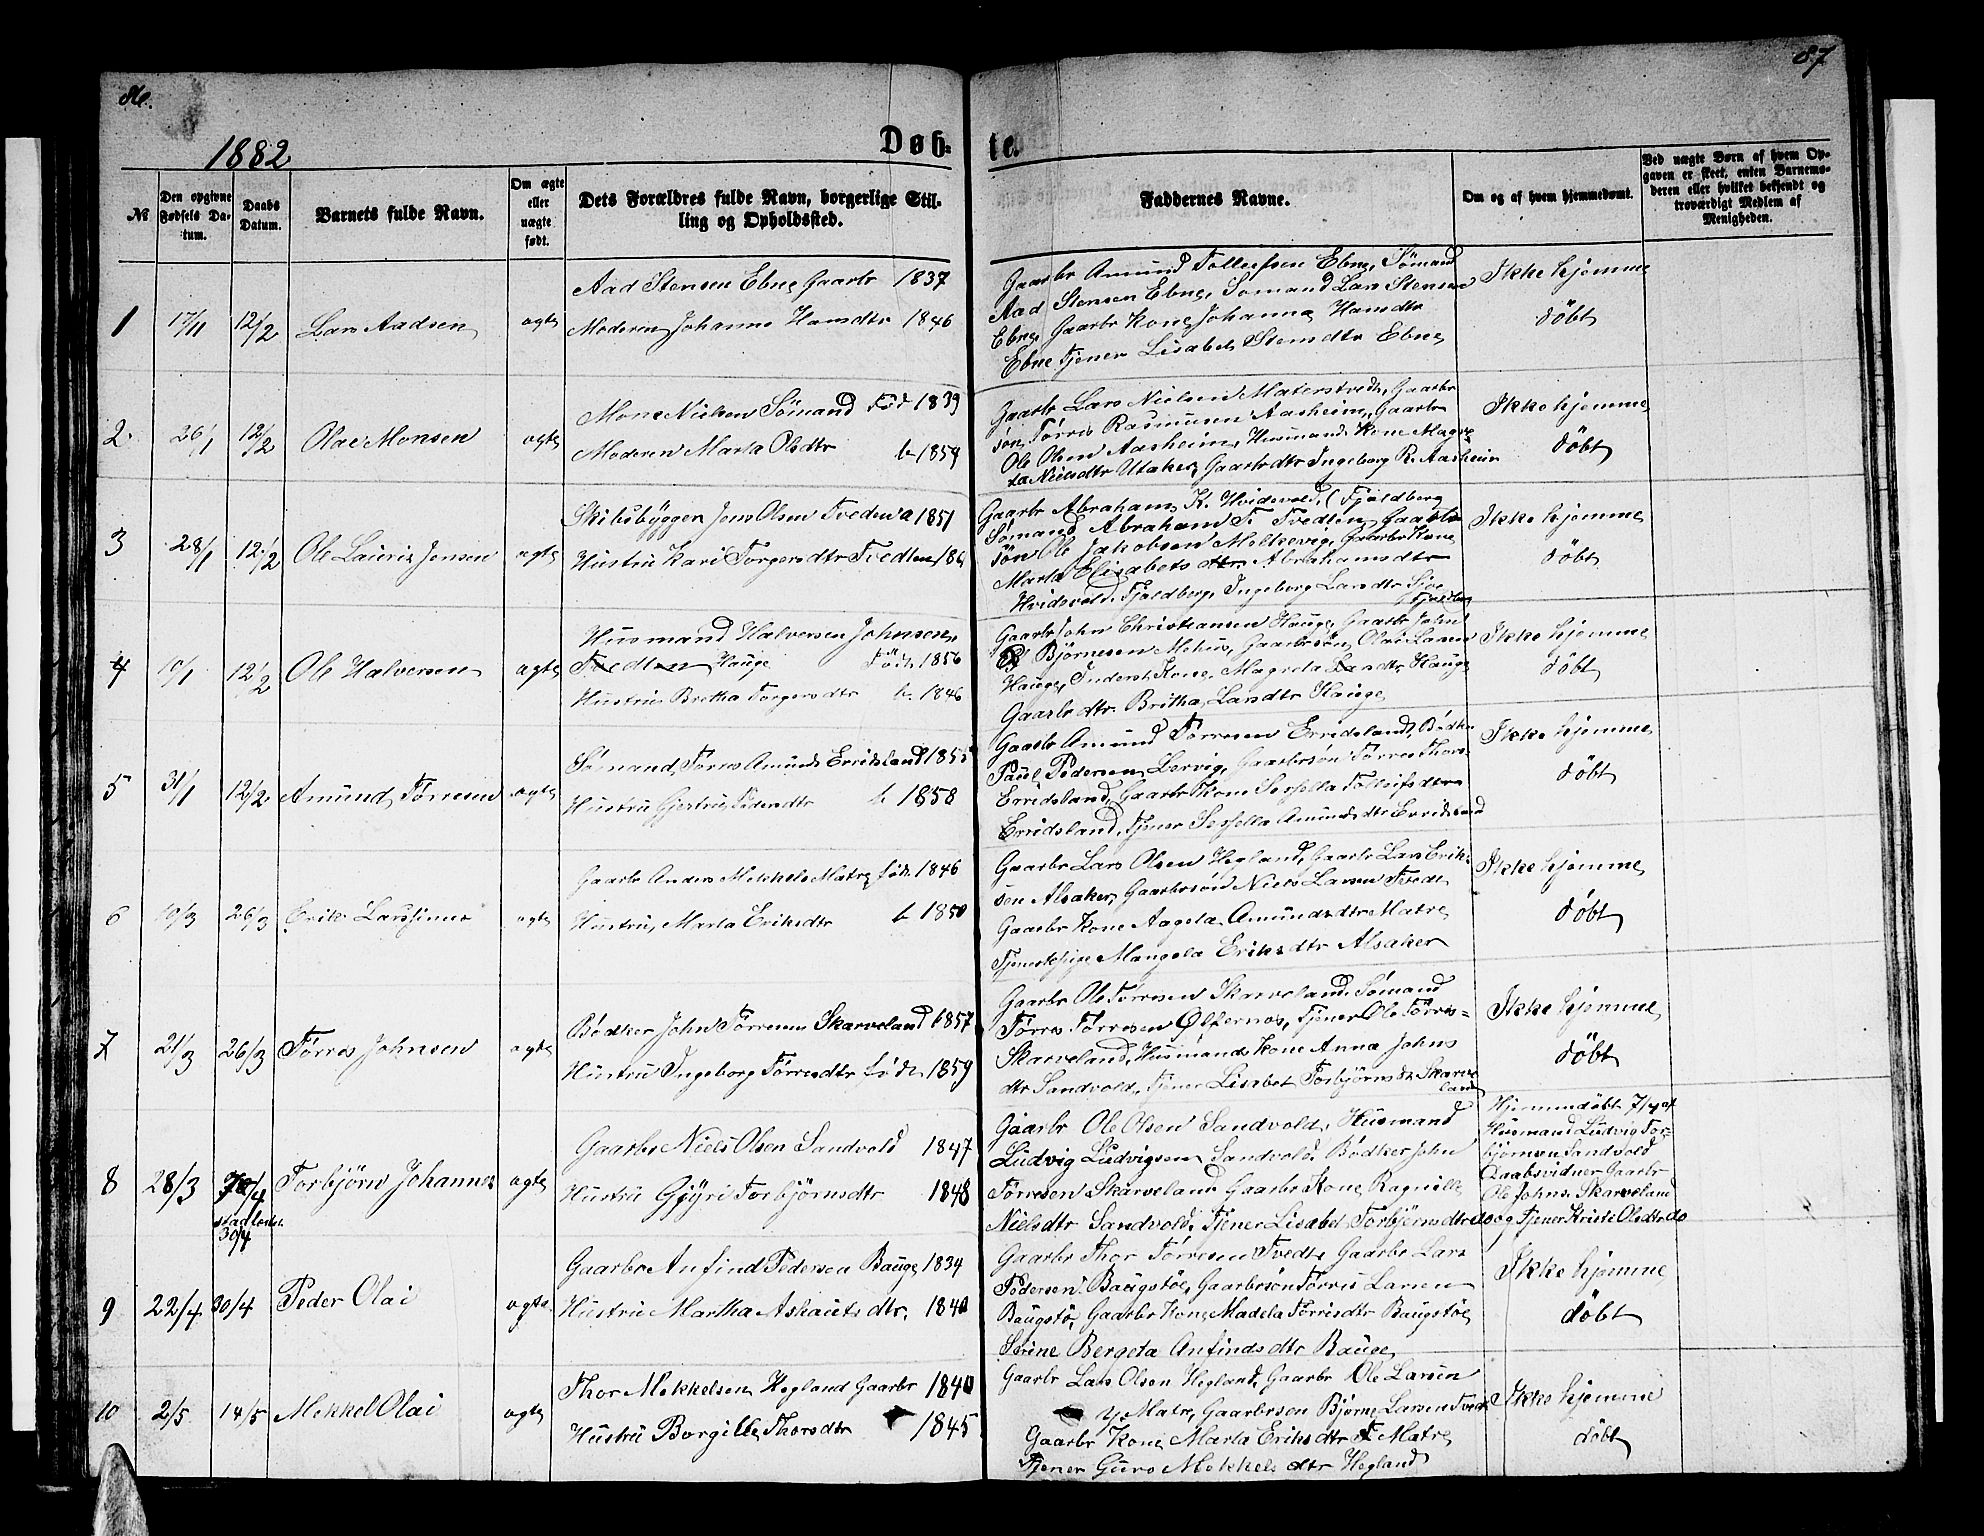 86.
87
1882
Døb-
te.
№
Den opgivne Fødsels Datum.
Daabs Datum.
Barnets fulde Navn.
Om ægte eller uægte født.
Dets Forældres fulde Navn, borgerlige Stilling og Opholdssted.
Faddernes Navne.
Om og af hvem hjemmedømt.
Ved uægte Børn af hvem Opgaven er skeet, enten Barnemoderen eller hvilket bekjendt og troværdigt Medlem af Menigheden.
1 17/11 12/2 Lars Aadsen ægte
Aad Stensen Ebne Gaarbr 1837
Moderen Johanne Hansdtr 1846
Gaarbr Amund Tollefsen Ebne, Sømand
Aad Stensen Ebne, Sømand Lars Stensen
Ebne, Gaarbr Kone Johanna Hansdtr
Ebne Tjener Lisabet Stensdtr Ebne
Ikke hjemme
døbt
2. 26/1 12/2 Olai Monsen ægte
Mons Nielsen Sømand Fød 1839
Moderen Marta Olsdtr 1859
Gaarbr Lars Nielsen Matersted, Gaarbr
søn Tørris Rasmusen Aasheim, Gaarbr
Ole Olsen Aasheim, Husmands Kone Magre
ta Nielsdtr Utaker, Gaarbrdtr Ingeborg R. Aasheim
Ikke hjemme
døbt
3 28/1 12/2 Ole Lauriz Jensen ægte
Skibsbygger Jens Olsen Tvedten 1851
Hustru Kari Torgersdtr Tvedten 186
Gaarbr Abraham K. Hvidevold, (Fjeldberg
Sømand Abraham T. Tvedten Gaarbr
søn Ole Jakobsen Molkevig, Gaarbr Kone
Marta Elisabets dtr Abrahamsdtr
Hvidevold Fjeldberg, Ingeborg Larsdtr
Fjeldberg
Ikke hjemme
døbt
4 10/1 12/2 Ole Halversen ægte
Husmand Halversen Johnsen,
Tvedten Hauge Født 1856
Hustru Britha Torgersdtr 1846
Gaarbr John Christiansen Hauge, Gaarbr John
Bjørnesen Mehus, Gaarbrsøn Olai Larsen
Hauge, Inderst Kone, Magreta Larsdtr Hauge
Gaarbrdtr. Britha Larsdtr Hauge
Ikke hjemme
døbt
5 31/1 12/2 Amund Tørresen ægte
Sømand, Tørres Amunds Erridsland 1855
Hustru Gjertru Pedersdtr 1858
Gaarbr Amund Tørresen Erridsland, Bødker
Paul Pedersen Lervig, Gaarbrsøn Tørres Thors
Erridsland, Gaarbr Kone Sessella Tollefsdtr
Erridsland, Tjener Sessella Amundsdtr Erridsland
Ikke hjemme
døbt
6 10/3 26/3 Erik Larssinus ægte
Gaarbr Anders Mekkels Matre født 1846
Hustru, Marta Eriksdtr 1850
Gaarbr Lars Olsen Hegland, Gaarbr Lars Erik-
sen Alsaker, Gaarbrsøn Niels Larsen Tvedt
Gaarbr Kone Aagela Amundsdtr Matre
Tjenestepige Mangela Eriksdtr Alsaker
Ikke hjemme
døbt
7 21/3 26/3 Tørres Johnsen ægte
Bødker John Tørresen Skarveland 1857
Hustru Ingeborg Tørresdtr født 1859
Gaarbr Ole Tørresen Skarveland Sømand
Tørres Tørresen Ølfernes, Tjener Ole Tørres-
Skarveland, Husmands Kone Anna Johns
dtr Sandvold, Tjener Lisabet Torbjørnsdtr Skarve
land
Ikke hjemme
døbt
8 28/3 30/4 Torbjørn Johannes ægte
stadfestet
30/4
Gaarbr Niels Olsen Sandvold 1847
Hustru Gjyri Torbjørnsdtr 1848
Gaarbr Ole Olsen Sandvold, Husmand
Ludvig Ludvigsen Sandvold Bødker John
Tørresen Skarveland Gaarbr Kone Ragnille
Nielsdtr Sandvold, Tjener Lisabet Torbjørnsdtr do
Hjemmedøbt 7/4 af
Husmand Ludvig Tor-
bjørnsen Sandvold
Daabsvidner Gaarbr
Ole Johns. Skarveland
og Tjener Kristi Olsdtr do
9 22/4 30/4 Peder Olai ægte
Gaarbr Anfind Pedersen Bauge 1834
Hustru Martha Askautsdtr. 1840
Gaarbr Thor Tørresen Tvedt, Gaarbr Lars
Pedersen Baugstøe, Gaarbrsøn Tørris Larsen
Baugstø, Gaarbr Kone Madela Tørrisdtr Baugstøe
Serine Bergeta Anfindsdtr Bauge
Ikke hjemme
døbt
10 2/5 14/5 Mekkel Olai ægte
Thor Mekkelsen Hegland Gaarbr 1840
Hustru Borgille Thorsdtr 1845
Gaarbr Lars Olsen Hegland, Gaarbr Ole Larsen
Y Matre, Gaarbrsøn Bjørne Larsen Tvedt
Gaarbr Kone Marta Eriksdtr Y Matre
Tjener Guro Mekkels dtr Hegland
Ikke hjemme
døbt